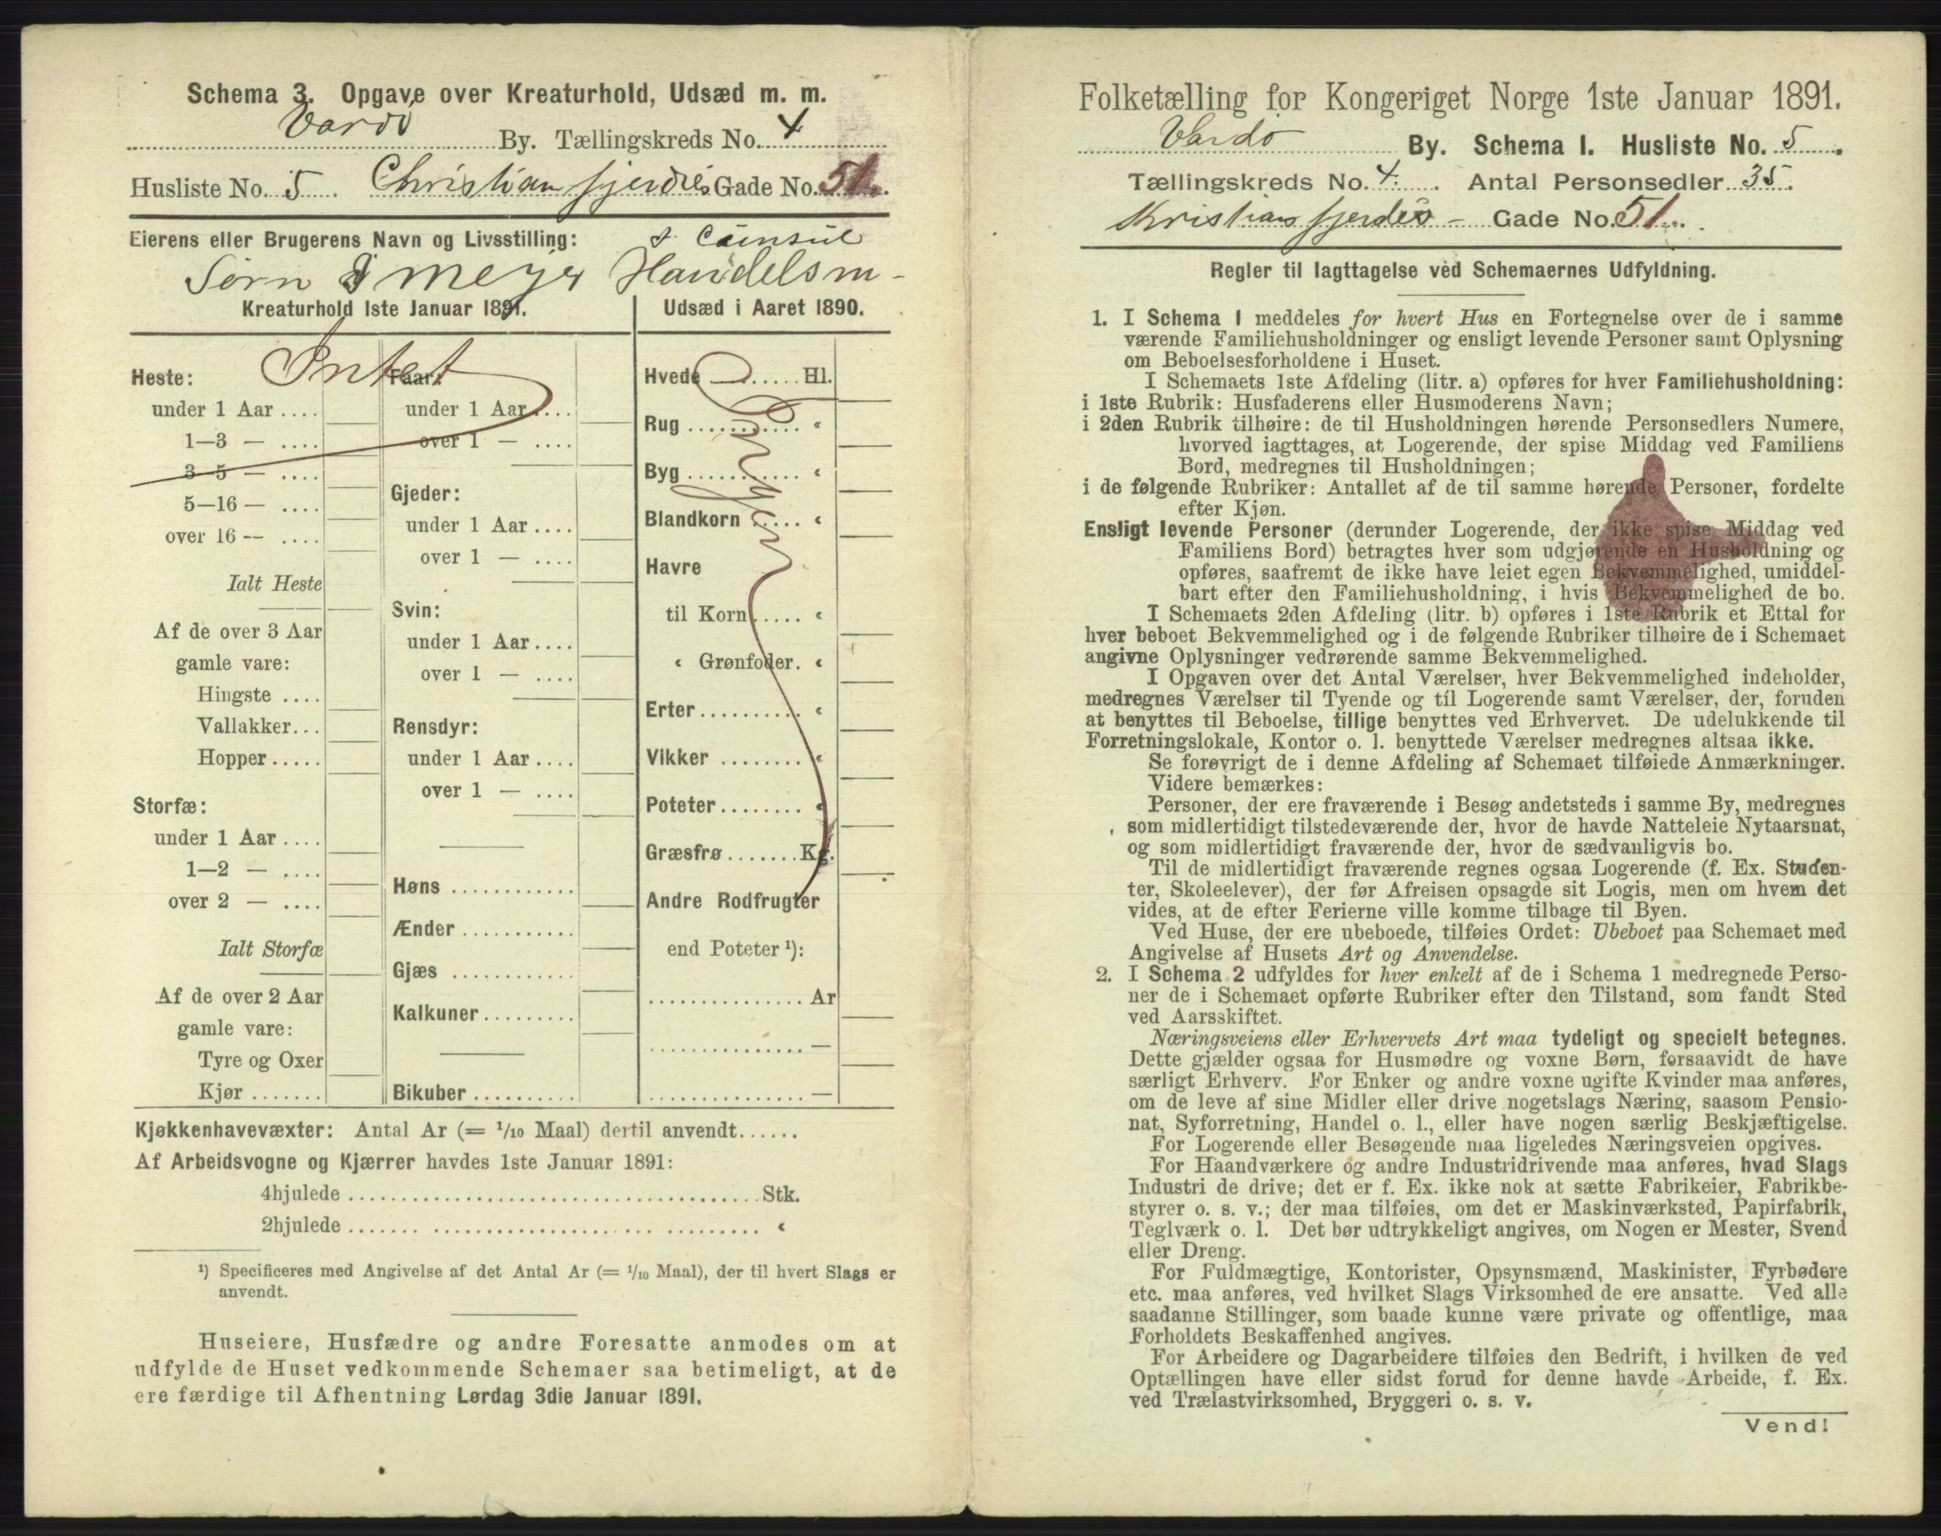 Schema 3. Opgave over Kreaturhold, Udsæd m. m.
Vardö By. Tællingskreds No. 4
Husliste No. 5. Christian fjerdes Gade No. 51.
Eierens eller Brugerens Navn og Livsstilling: & Consul
Sørn Meyer Handelsm-
Kreaturhold 1ste Januar 1891.
Intet
Heste:
under 1 Aar ....
1—3 — ....
3—5 — ....
5—16 — ....
over 16 — ....
Ialt Heste
Af de over 3 Aar
gamle vare:
Hingste ....
Vallakker...
Hopper.....
Storfæ:
under 1 Aar ....
1—2 — ....
over 2 — ....
Ialt Storfæ
Af de over 2 Aar
gamle vare:
Tyre og Oxer
Kjør .......
Faar:
under 1 Aar....
over 1 — ....
Gjeder:
under 1 Aar....
over 1 — ....
Svin:
under 1 Aar....
over 1 — ....
Rensdyr:
under 1 Aar....
over 1 — ....
Høns ............
Ænder ...........
Gjæs ............
Kalkuner.........
Bikuber ..........
Udsæd i Aaret 1890.
Hvede ........ Hl.
Rug ........... «
Byg ........... «
Blandkorn ..... «
Havre
til Korn..... «
« Grønfoder. «
Erter.......... «
Vikker ........ «
Poteter ........ «
Græsfrø....... Kg.
Andre Rodfrugter
end Poteter ¹):
............... Ar
............... —
............... —
Kjøkkenhavevæxter: Antal Ar (= 1/10 Maal) dertil anvendt......
Af Arbeidsvogne og Kjærrer havdes 1ste Januar 1891:
4hjulede ........................................ Stk.
2hjulede ........................................ «
¹) Specificeres med Angivelse af det Antal Ar (= 1/10 Maal), der til hvert Slags er
anvendt.
Huseiere, Husfædre og andre Foresatte anmodes om at
udfylde de Huset vedkommende Schemaer saa betimeligt, at de
ere færdige til Afhentning Lørdag 3die Januar 1891.
Folketælling for Kongeriget Norge 1ste Januar 1891.
Vardö By. Schema I. Husliste No. 5.
Tællingskreds No. 4. Antal Personsedler 35.
Kristian fjerdes - Gade No. 51.
Regler til Iagttagelse ved Schemaernes Udfyldning.
1. I Schema 1 meddeles for hvert Hus en Fortegnelse over de i samme
værende Familiehusholdninger og ensligt levende Personer samt Oplysning
om Beboelsesforholdene i Huset.
I Schemaets 1ste Afdeling (litr. a) opføres for hver Familiehusholdning:
i 1ste Rubrik: Husfaderens eller Husmoderens Navn;
i 2den Rubrik tilhøire: de til Husholdningen hørende Personsedlers Numere,
hvorved iagttages, at Logerende, der spise Middag ved Familiens
Bord, medregnes til Husholdningen;
i de følgende Rubriker: Antallet af de til samme hørende Personer, fordelte
efter Kjøn.
Ensligt levende Personer (derunder Logerende, der ikke spise Middag ved
Familiens Bord) betragtes hver som udgjørende en Husholdning og
opføres, saafremt de ikke have leiet egen Bekvemmelighed, umiddel-
bart efter den Familiehusholdning, i hvis Bekvemmelighed de bo.
I Schemaets 2den Afdeling (litr. b) opføres i 1ste Rubrik et Ettal for
hver beboet Bekvemmelighed og i de følgende Rubriker tilhøire de i Schemaet
angivne Oplysninger vedrørende samme Bekvemmelighed.
I Opgaven over det Antal Værelser, hver Bekvemmelighed indeholder,
medregnes Værelser til Tyende og til Logerende samt Værelser, der, foruden
at benyttes til Beboelse, tillige benyttes ved Erhvervet. De udelukkende til
Forretningslokale, Kontor o. l. benyttede Værelser medregnes altsaa ikke.
Se forøvrigt de i denne Afdeling af Schemaet tilføiede Anmærkninger.
Videre bemærkes:
Personer, der ere fraværende i Besøg andetsteds i samme By, medregnes
som midlertidigt tilstedeværende der, hvor de havde Natteleie Nytaarsnat,
og som midlertidigt fraværende der, hvor de sædvanligvis bo.
Til de midlertidigt fraværende regnes ogsaa Logerende (f. Ex. Studen-
ter, Skoleelever), der før Afreisen opsagde sit Logis, men om hvem det
vides, at de efter Ferierne ville komme tilbage til Byen.
Ved Huse, der ere ubeboede, tilføies Ordet: Ubeboet paa Schemaet med
Angivelse af Husets Art og Anvendelse.
2. I Schema 2 udfyldes for hver enkelt af de i Schema 1 medregnede Perso-
ner de i Schemaet opførte Rubriker efter den Tilstand, som fandt Sted
ved Aarsskiftet.
Næringsveiens eller Erhvervets Art maa tydeligt og specielt betegnes.
Dette gjælder ogsaa for Husmødre og voxne Børn, forsaavidt de have
særligt Erhverv. For Enker og andre voxne ugifte Kvinder maa anføres,
om de leve af sine Midler eller drive nogetslags Næring, saasom Pensio-
nat, Syforretning, Handel o. l., eller have nogen særlig Beskjæftigelse.
For Logerende eller Besøgende maa ligeledes Næringsveien opgives.
For Haandværkere og andre Industridrivende maa anføres, hvad Slags
Industri de drive; det er f. Ex. ikke nok at sætte Fabrikeier, Fabrikbe-
styrer o. s. v.; der maa tilføies, om det er Maskinværksted, Papirfabrik,
Teglværk o. l. Det bør udtrykkeligt angives, om Nogen er Mester, Svend
eller Dreng.
For Fuldmægtige, Kontorister, Opsynsmænd, Maskinister, Fyrbødere
etc. maa anføres, ved hvilket Slags Virksomhed de ere ansatte. Ved alle
saadanne Stillinger, som baade kunne være private og offentlige, maa
Forholdets Beskaffenhed angives.
For Arbeidere og Dagarbeidere tilføies den Bedrift, i hvilken de ved
Optællingen have eller sidst forud for denne havde Arbeide, f. Ex.
ved Trælastvirksomhed, Bryggeri o. s. v.
Vend!